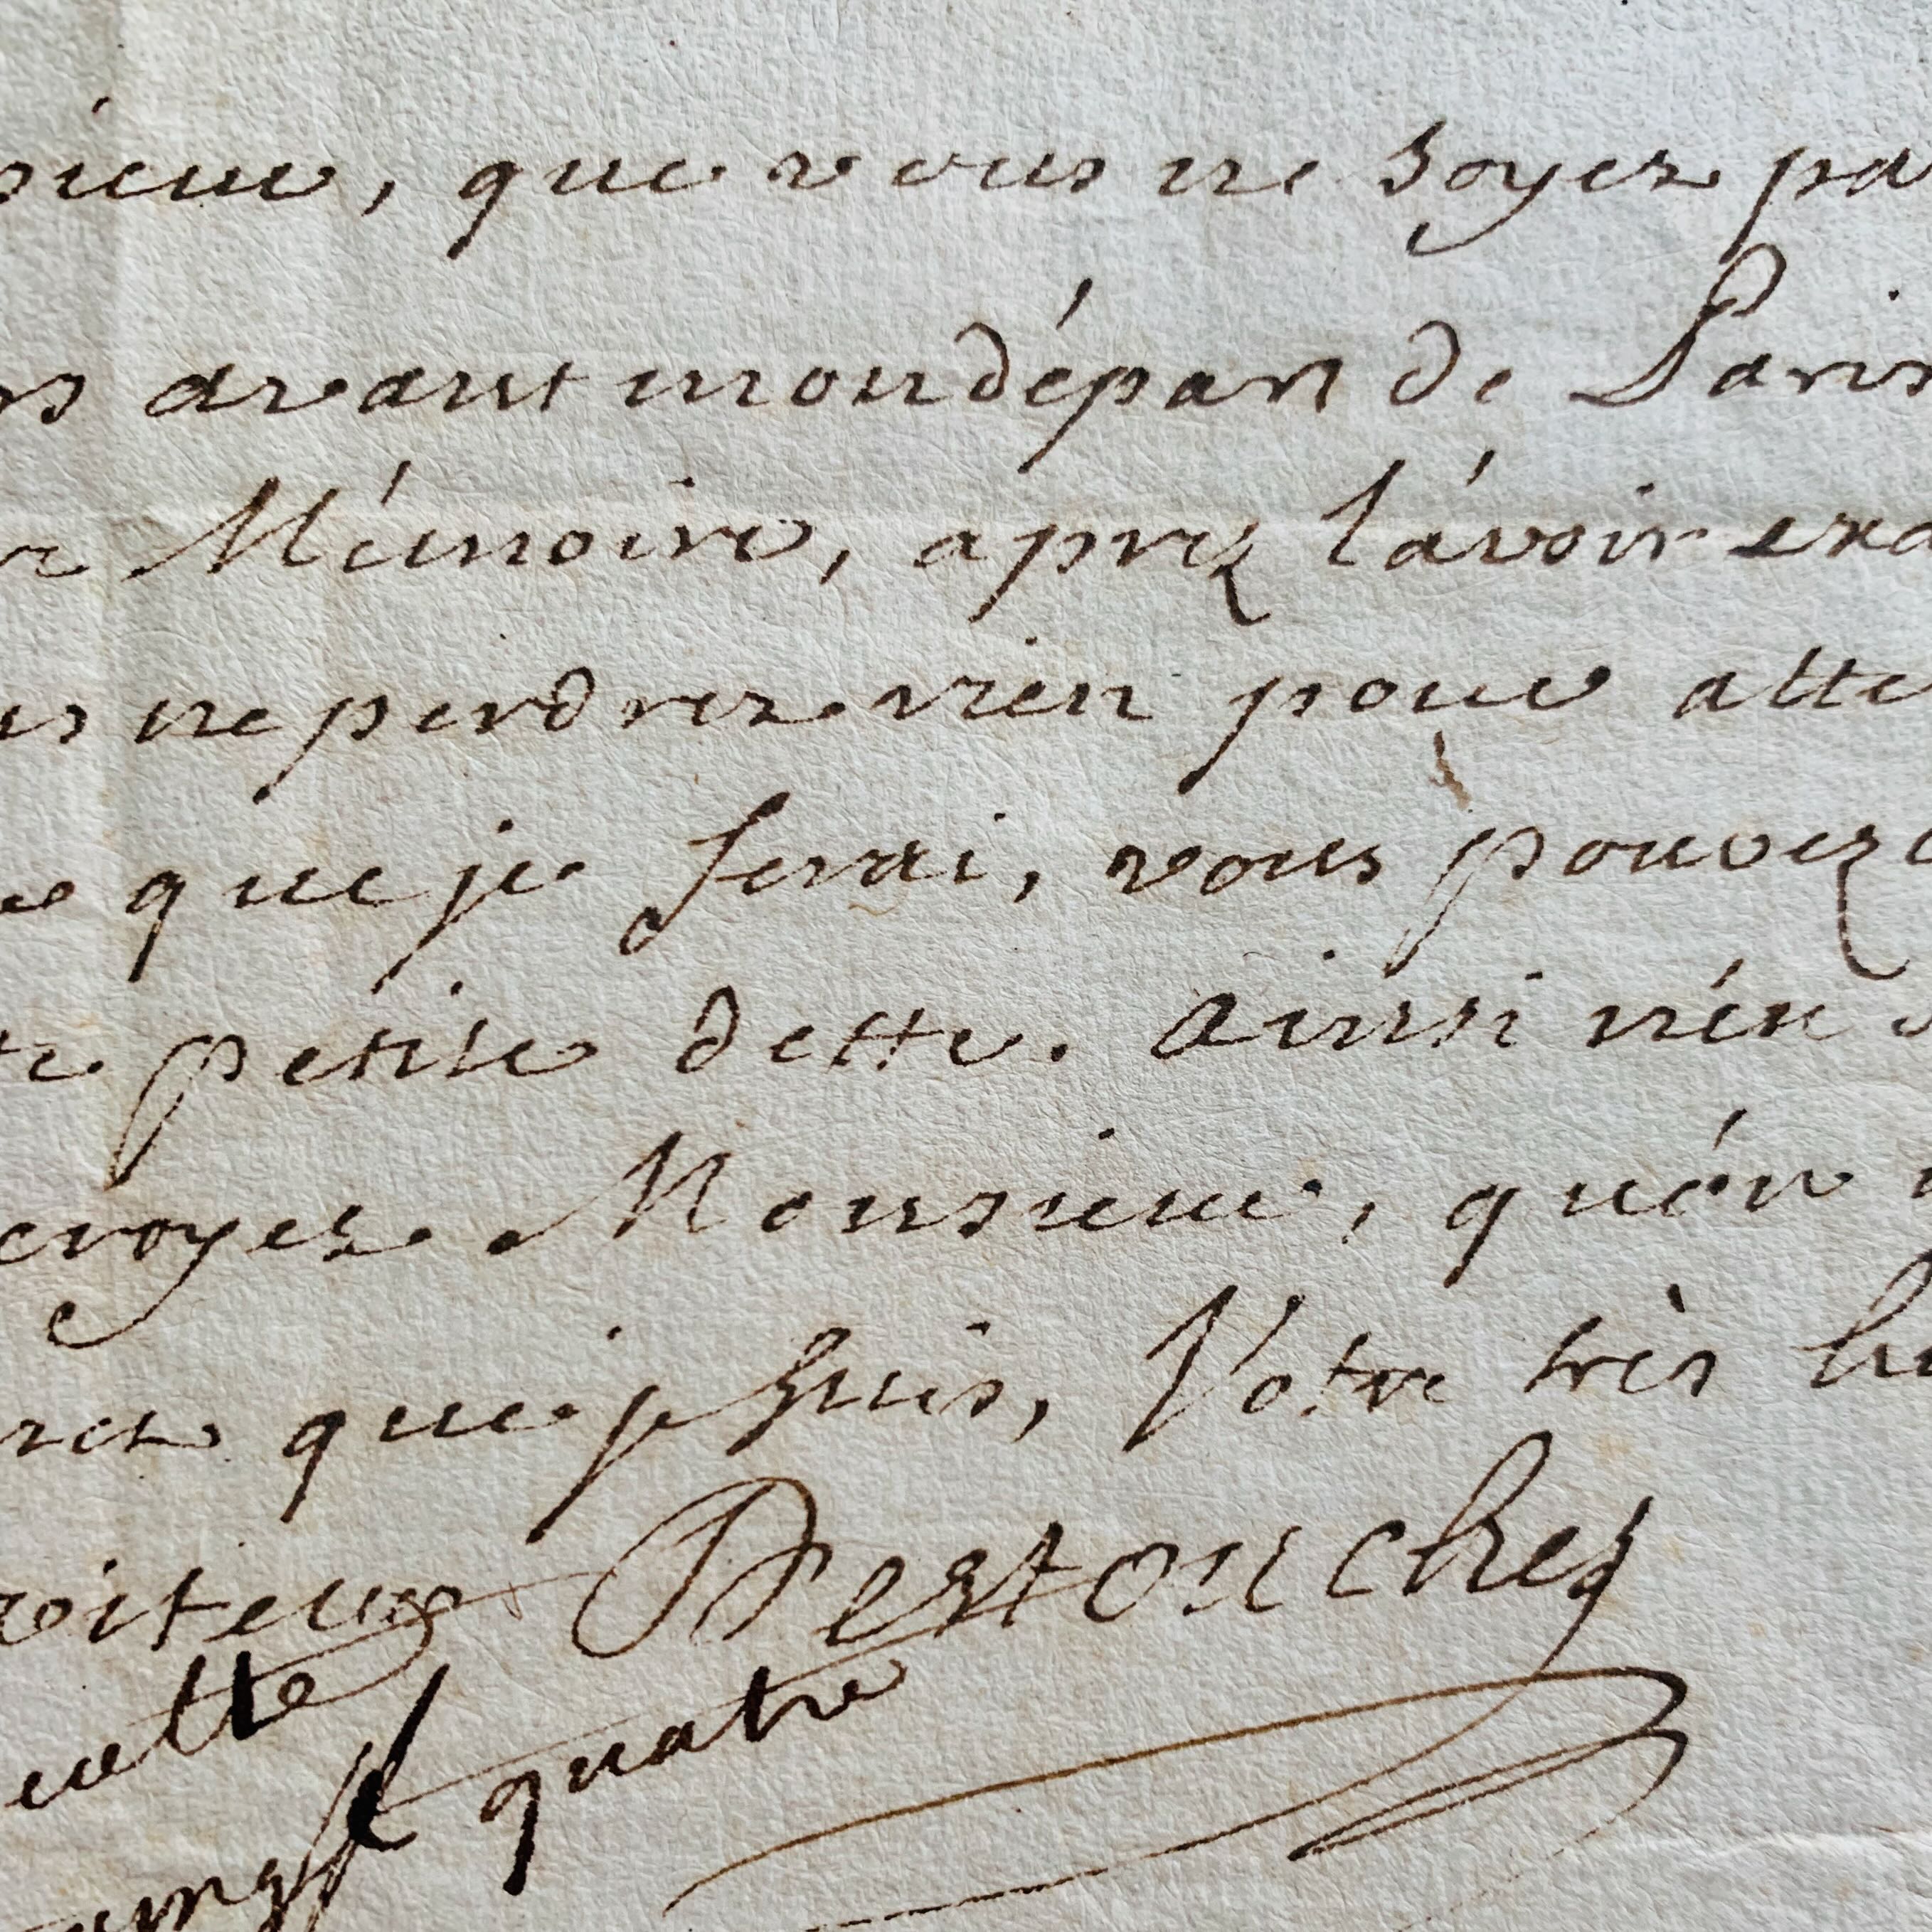 sieur, que vous ne soyez pa
rs avant mon départ de Paris
re Mémoire, aprez l'avoir exa
us ne perdrez rien pour atte
e que je ferai, vous pouvez
te petite dette. ainsi rien
croyez Monsieur, qu'en
rez que je suis, Votre très hu
oiteur Destouches
cette
vingt quatre